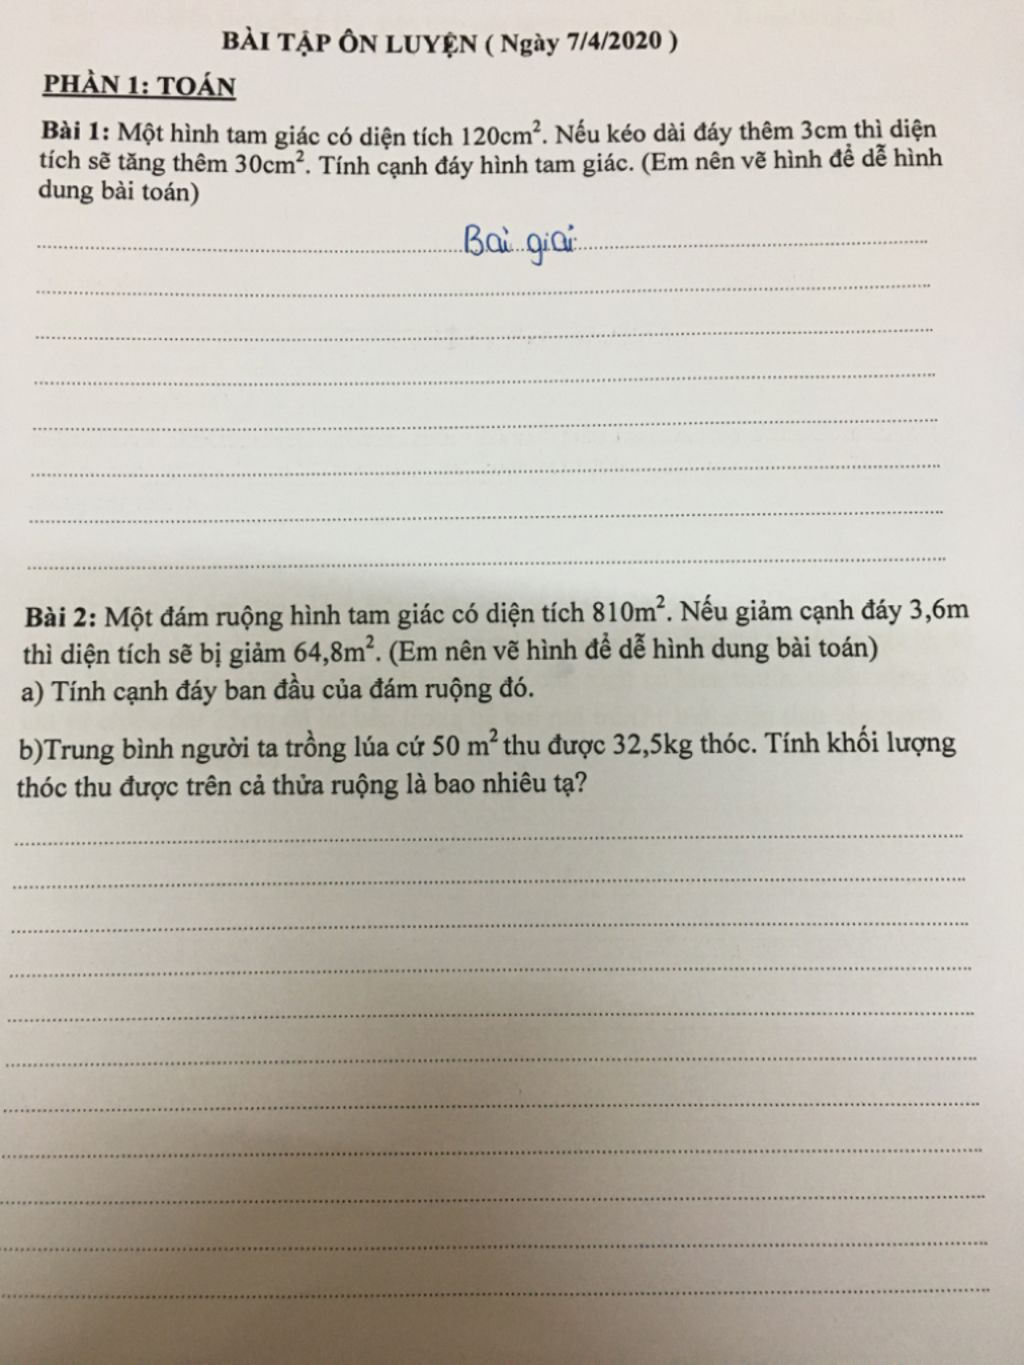 BÀI TẬP ÔN LUYỆN ( Ngày 7/4/2020 )
PHẦN 1: TOÁN
Bài 1: Một hình tam giác có diện tích 120cm². Nếu kéo dài đáy thêm 3cm thì diện
tích sẽ tăng thêm 30cm². Tính cạnh đáy hình tam giác. (Em nên vẽ hình để dễ hình
dung bài toán)
Bài giải
Bài 2: Một đám ruộng hình tam giác có diện tích 810m². Nếu giảm cạnh đáy 3,6m
thì diện tích sẽ bị giảm 64,8m². (Em nên vẽ hình để dễ hình dung bài toán)
a) Tính cạnh đáy ban đầu của đám ruộng đó.
b)Trung bình người ta trồng lúa cứ 50 m² thu được 32,5kg thóc. Tính khối lượng
thóc thu được trên cả thửa ruộng là bao nhiêu tạ?